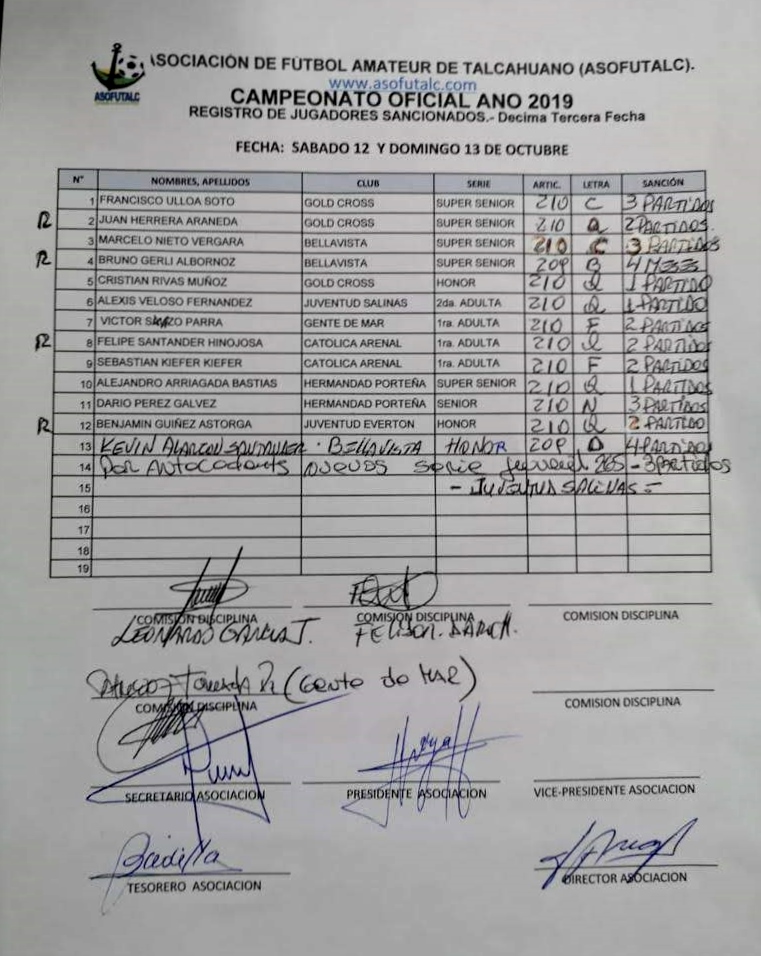 ASOCIACIÓN DE FÚTBOL AMATEUR DE TALCAHUANO (ASOFUTALC).
ASOFUTALC
www.asofutalc.com
CAMPEONATO OFICIAL ANO 2019
REGISTRO DE JUGADORES SANCIONADOS.- Decima Tercera Fecha
FECHA: SABADO 12 Y DOMINGO 13 DE OCTUBRE
N° NOMBRES, APELLIDOS CLUB SERIE ARTIC. LETRA SANCIÓN
1 FRANCISCO ULLOA SOTO GOLD CROSS SUPER SENIOR 210 C 3 PARTIDOS
R 2 JUAN HERRERA ARANEDA GOLD CROSS SUPER SENIOR 210 Q 2 PARTIDOS.
3 MARCELO NIETO VERGARA BELLAVISTA SUPER SENIOR 210 C 3 PARTIDOS
R 4 BRUNO GERLI ALBORNOZ BELLAVISTA SUPER SENIOR 209 B 4 MESES
5 CRISTIAN RIVAS MUÑOZ GOLD CROSS HONOR 210 Q 1 PARTIDO
6 ALEXIS VELOSO FERNANDEZ JUVENTUD SALINAS 2da. ADULTA 210 Q 1 PARTIDO
7 VICTOR PARRA GENTE DE MAR 1ra. ADULTA 210 F 2 PARTIDOS
R 8 FELIPE SANTANDER HINOJOSA CATOLICA ARENAL 1ra. ADULTA 210 Q 2 PARTIDOS
9 SEBASTIAN KIEFER KIEFER CATOLICA ARENAL 1ra. ADULTA 210 F 2 PARTIDOS
10 ALEJANDRO ARRIAGADA BASTIAS HERMANDAD PORTEÑA SUPER SENIOR 210 Q 1 PARTIDOS
11 DARIO PEREZ GALVEZ HERMANDAD PORTEÑA SENIOR 210 N 3 PARTIDOS
R 12 BENJAMIN GUIÑEZ ASTORGA JUVENTUD EVERTON HONOR 210 Q 2 PARTIDO
13 KEVIN ALARCON SANTANDER · BELLAVISTA HONOR 209 D 4 PARTIDOS
14 POR nuevos serie juvenil 265 - 3 partidos
15 - JUVENTUD SALINAS -
16
17
18
19
COMISION DISCIPLINA COMISION DISCIPLINA COMISION DISCIPLINA
LEONARDO GARCIA J.
(GENTE de MAR)
COMISION DISCIPLINA COMISION DISCIPLINA
SECRETARIO ASOCIACION PRESIDENTE ASOCIACION VICE-PRESIDENTE ASOCIACION
TESORERO ASOCIACION DIRECTOR ASOCIACION